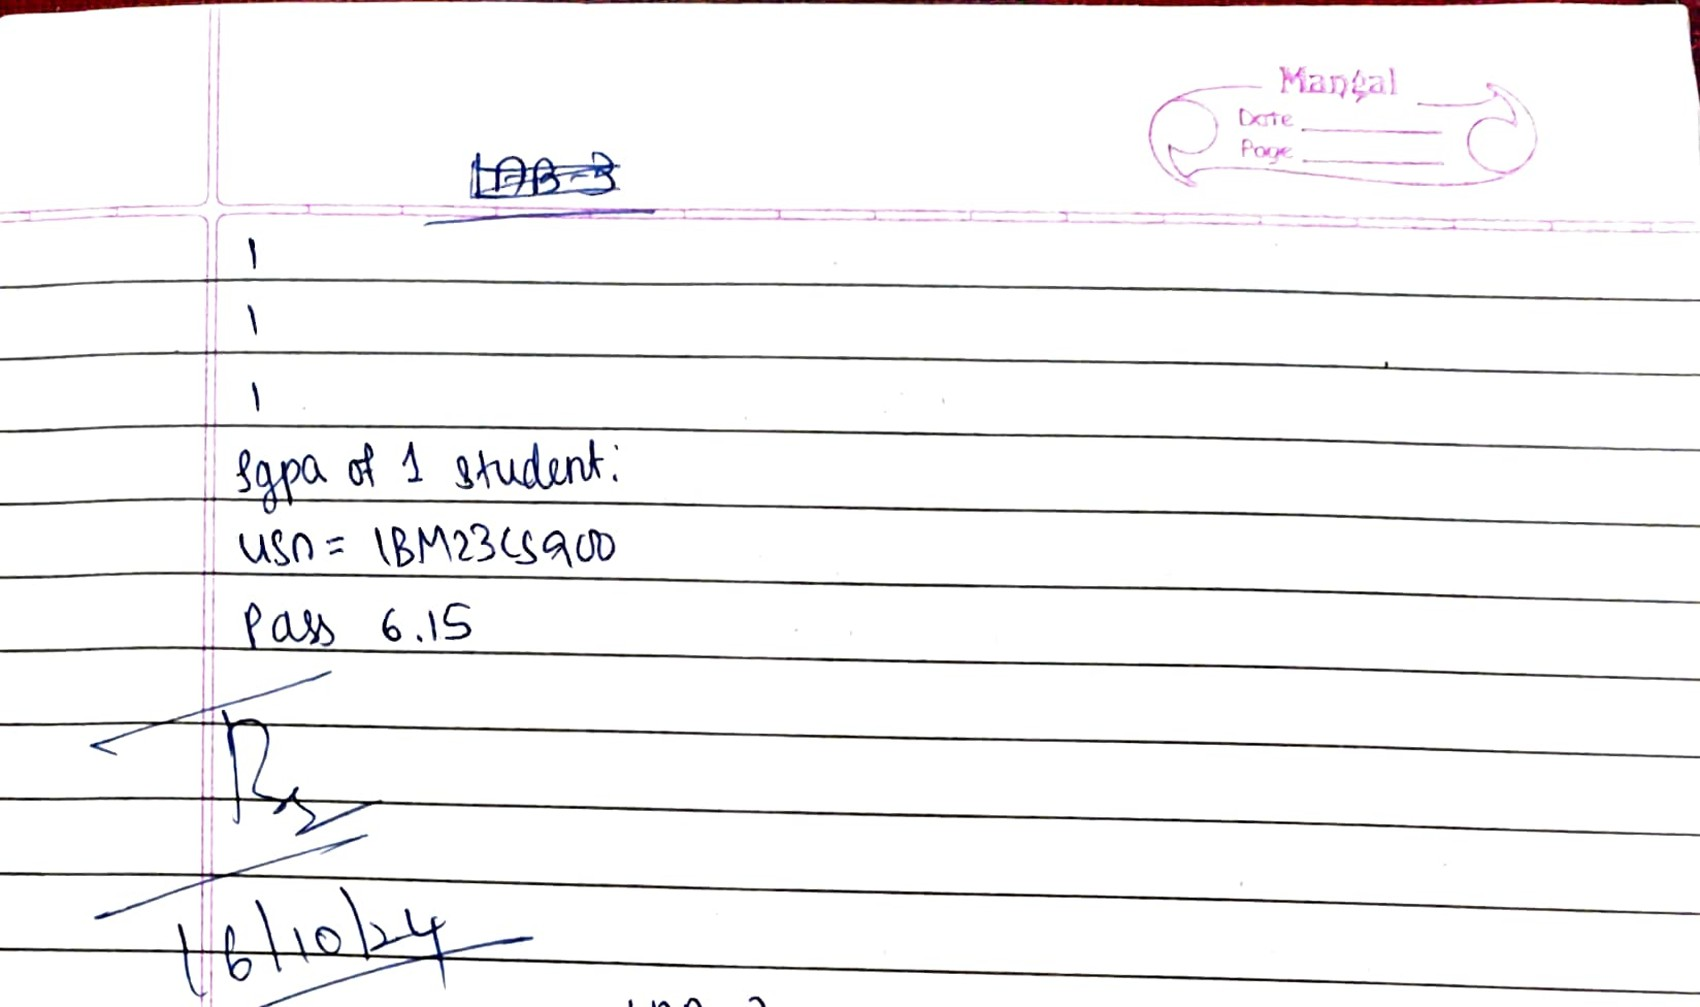 Mangal
Date
Page
LAB-3
1
1
1
Sgpa of 1 student:
USn = 1BM23CS900
Pass 6.15
16/10/24